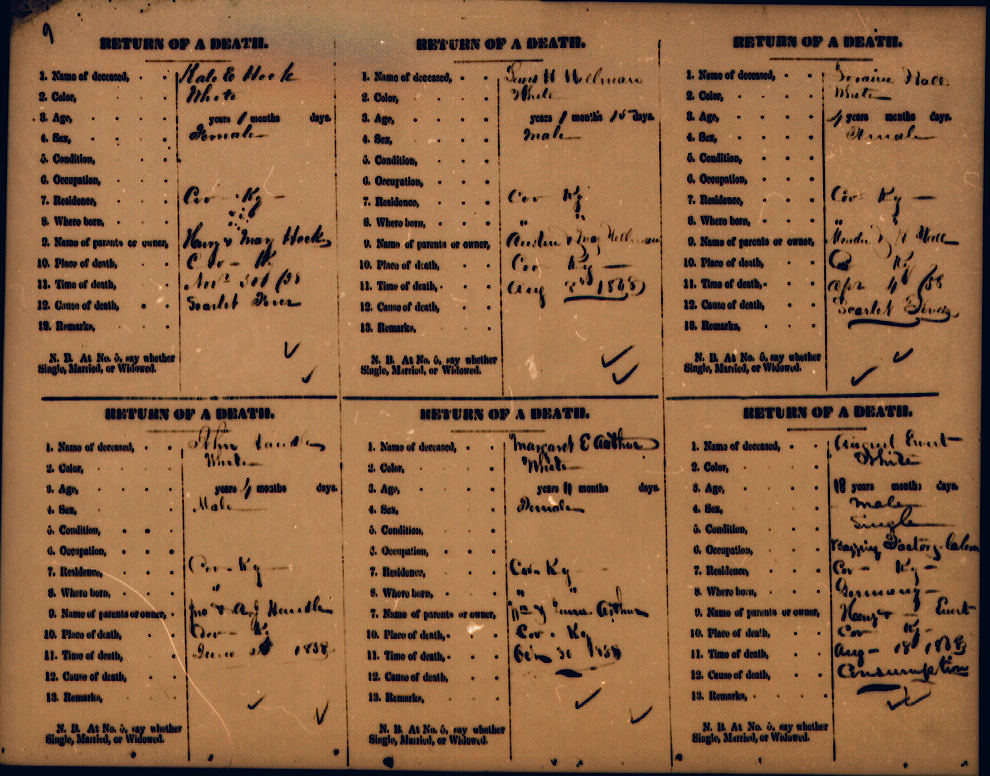 9
RETURN OF A DEATH.
1. Name of deceased, Kate E Hook
2. Color, White
3. Age, years 1 months days.
4. Sex, Female
5. Condition,
6. Occupation,
7. Residence, Cov Ky
8. Where born, "
9. Name of parents or owner, Henry & May Hook
10. Place of death, Cov Ky
11. Time of death, Nov 30th /58
12. Cause of death, Scarlet Fever
13. Remarks,
N. B. At No. 5, say whether
Single, Married, or Widowed.
RETURN OF A DEATH.
1. Name of deceased, Lewis H Hellman
2. Color, White
3. Age, years 1 months 15 days.
4. Sex, Male
5. Condition,
6. Occupation,
7. Residence, Cov Ky
8. Where born, "
9. Name of parents or owner, Hellman
10. Place of death, Cov Ky
11. Time of death, Aug 3rd 1858
12. Cause of death,
13. Remarks,
N. B. At No. 5, say whether
Single, Married, or Widowed.
RETURN OF A DEATH.
1. Name of deceased,
2. Color, White
3. Age, 4 years months days.
4. Sex, Female
5. Condition,
6. Occupation,
7. Residence, Cov Ky
8. Where born, "
9. Name of parents or owner,
10. Place of death, Ky
11. Time of death, Apr 4th /58
12. Cause of death, Scarlet Fever
13. Remarks,
N. B. At No. 5, say whether
Single, Married, or Widowed.
RETURN OF A DEATH.
1. Name of deceased, John
2. Color, White
3. Age, years 4 months days.
4. Sex, Male
5. Condition,
6. Occupation,
7. Residence, Cov Ky
8. Where born, "
9. Name of parents or owner, Jno & A J
10. Place of death, Cov Ky
11. Time of death, June 1858
12. Cause of death,
13. Remarks,
N. B. At No. 5, say whether
Single, Married, or Widowed.
RETURN OF A DEATH.
1. Name of deceased, Margaret E Arthur
2. Color, White
3. Age, years 11 months days.
4. Sex, Female
5. Condition,
6. Occupation,
7. Residence, Cov Ky
8. Where born, " "
7. Name of parents or owner, Wm & Arthur
10. Place of death, Cov. Ky
11. Time of death, 30 1858
12. Cause of death,
13. Remarks,
N. B. At No. 5, say whether
Single, Married, or Widowed.
RETURN OF A DEATH.
1. Name of deceased, August Ewert
2. Color, White
3. Age, 18 years months days.
4. Sex, Male
5. Condition, Single
6. Occupation, Factory
7. Residence, Cov Ky
8. Where born, Germany
9. Name of parents or owner, Henry Ewert
10. Place of death, Cov Ky
11. Time of death, Aug 18th 1858
12. Cause of death, Consumption
13. Remarks,
N. B. At No. 5, say whether
Single, Married, or Widowed.